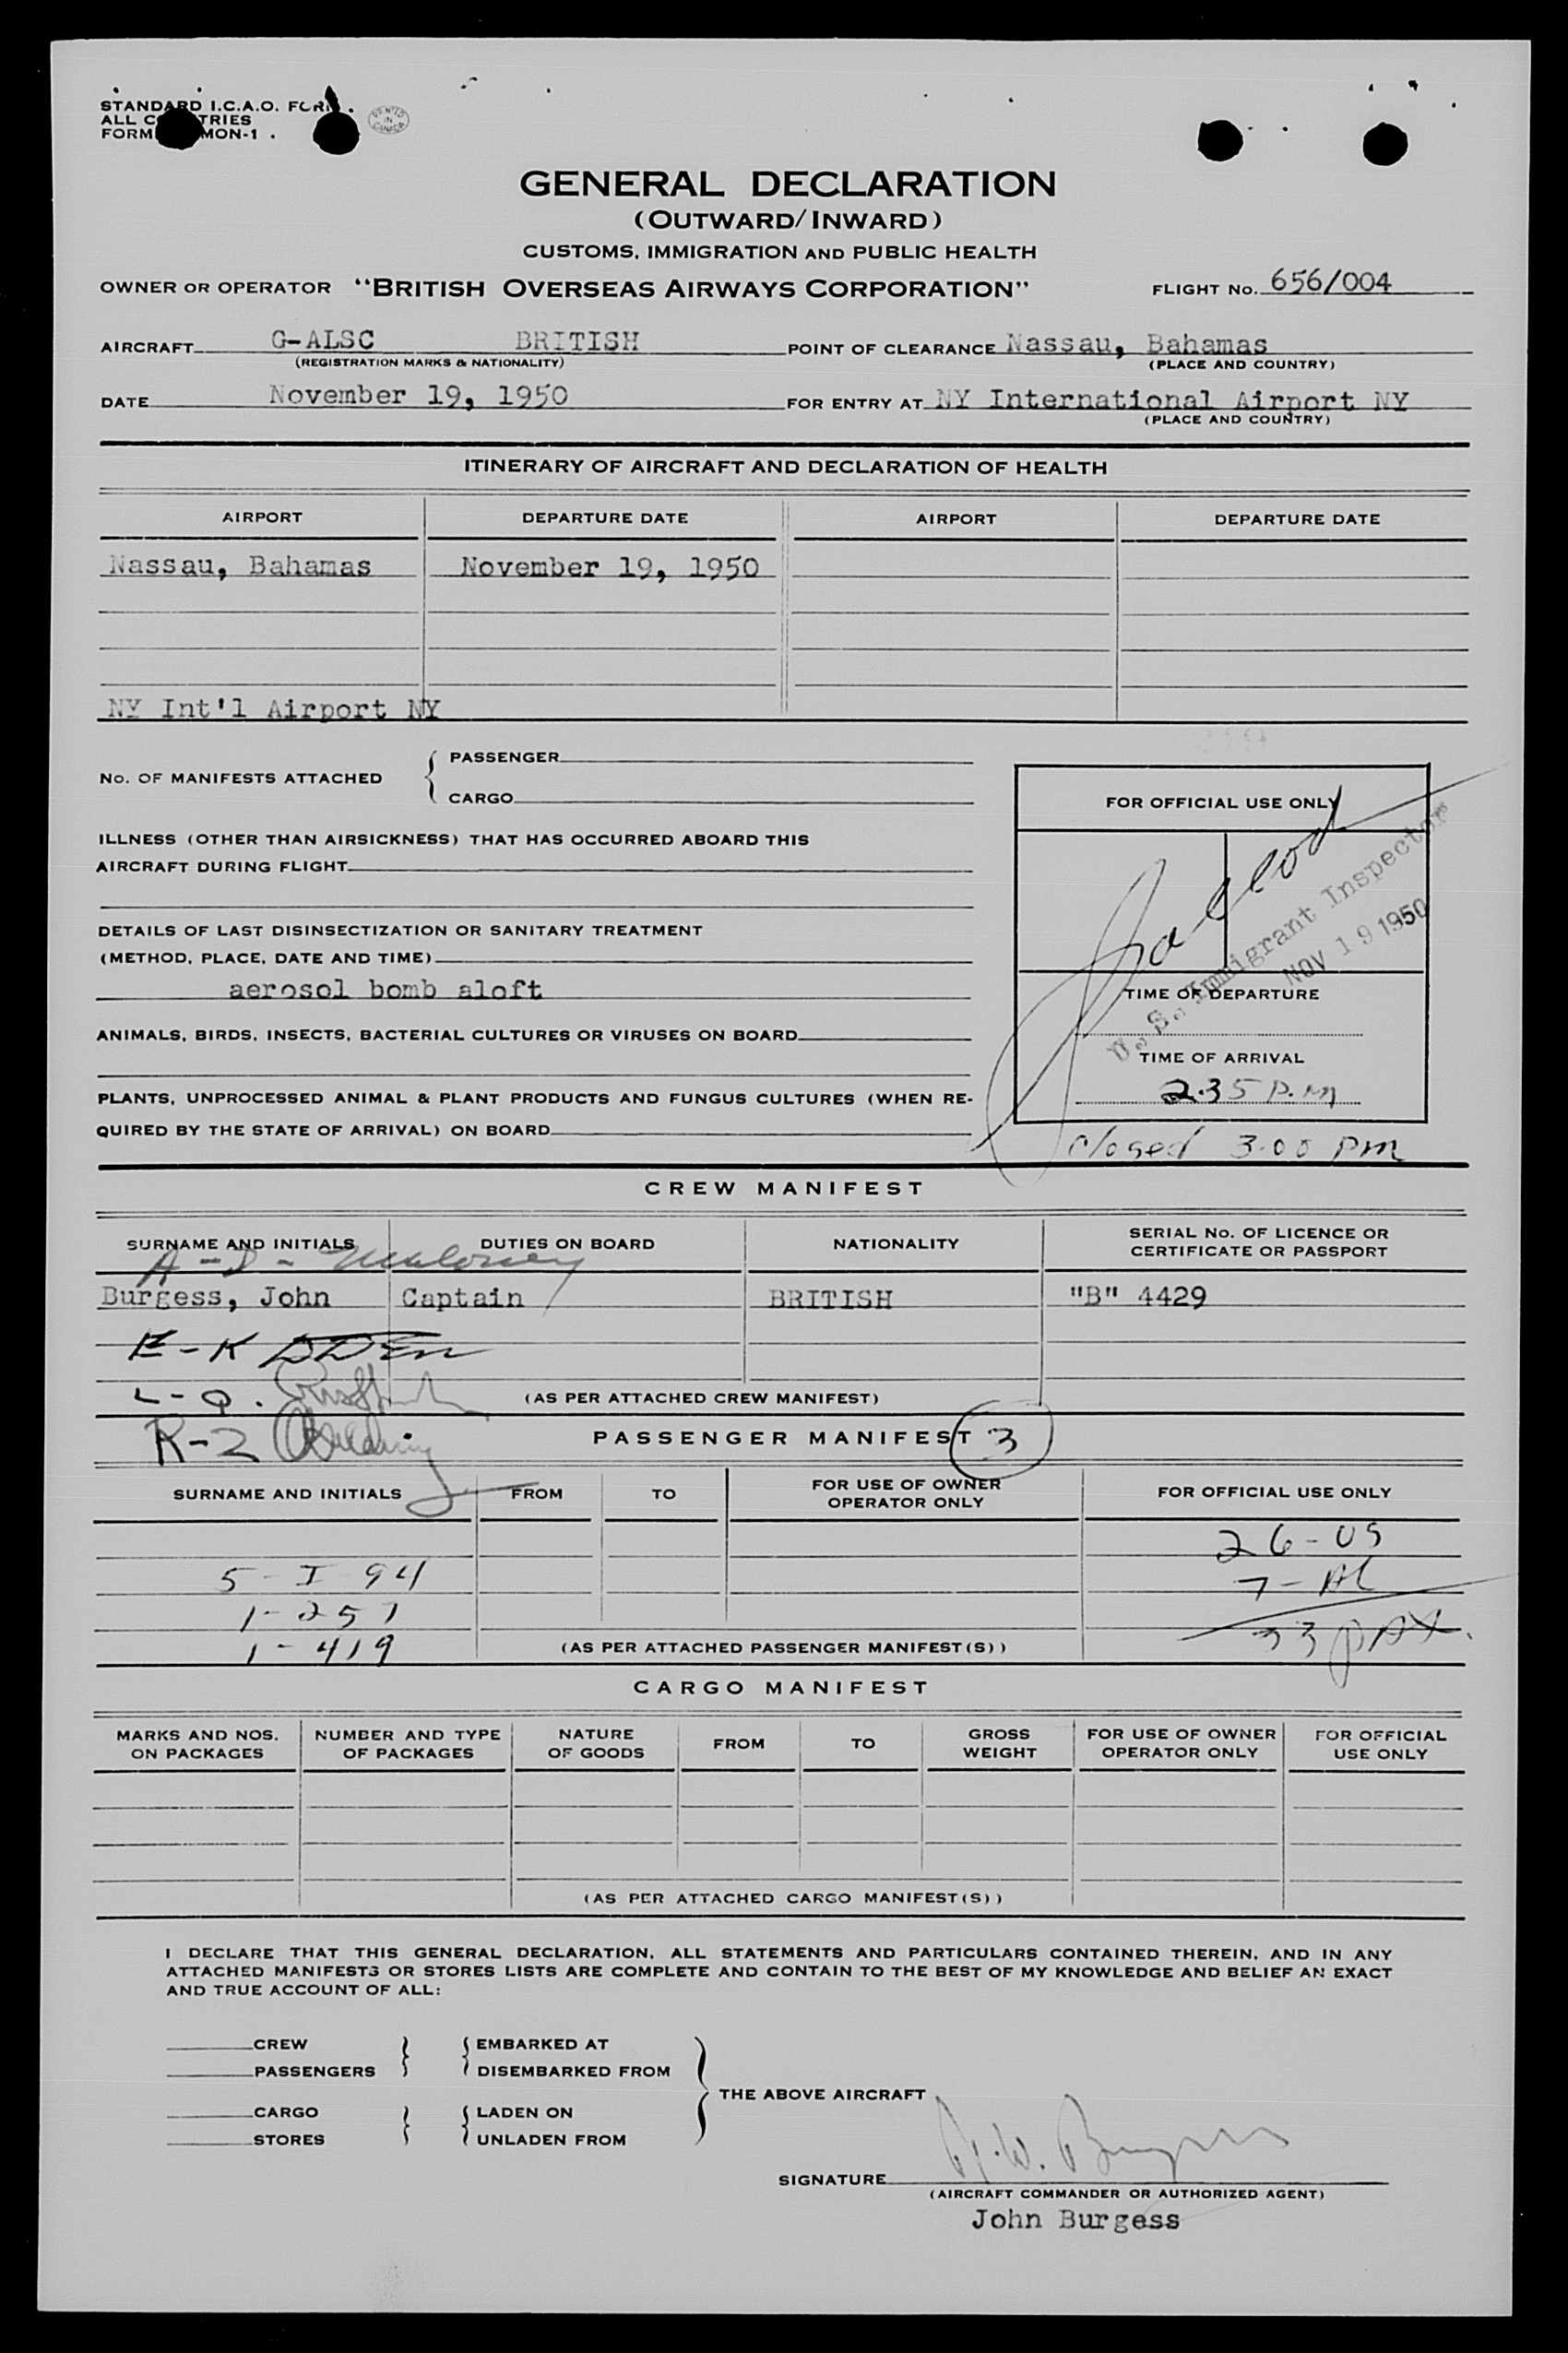 STANDARD I.C.A.O. FORM
ALL COUNTRIES
FORM MON-1
PRINTED IN CANADA
GENERAL DECLARATION
(OUTWARD/INWARD)
CUSTOMS, IMMIGRATION AND PUBLIC HEALTH
OWNER OR OPERATOR "BRITISH OVERSEAS AIRWAYS CORPORATION" FLIGHT No. 656/004
AIRCRAFT G-ALSC BRITISH POINT OF CLEARANCE Nassau, Bahamas
(REGISTRATION MARKS & NATIONALITY) (PLACE AND COUNTRY)
DATE November 19, 1950 FOR ENTRY AT NY International Airport NY
(PLACE AND COUNTRY)
ITINERARY OF AIRCRAFT AND DECLARATION OF HEALTH
AIRPORT DEPARTURE DATE AIRPORT DEPARTURE DATE
Nassau, Bahamas November 19, 1950
NY Int'l Airport NY
No. OF MANIFESTS ATTACHED { PASSENGER
CARGO
ILLNESS (OTHER THAN AIRSICKNESS) THAT HAS OCCURRED ABOARD THIS
AIRCRAFT DURING FLIGHT
DETAILS OF LAST DISINSECTIZATION OR SANITARY TREATMENT
(METHOD, PLACE, DATE AND TIME)
aerosol bomb aloft
ANIMALS, BIRDS, INSECTS, BACTERIAL CULTURES OR VIRUSES ON BOARD
PLANTS, UNPROCESSED ANIMAL & PLANT PRODUCTS AND FUNGUS CULTURES (WHEN RE-
QUIRED BY THE STATE OF ARRIVAL) ON BOARD
FOR OFFICIAL USE ONLY
U. S. Immigrant Inspector
NOV 19 1950
TIME OF DEPARTURE
TIME OF ARRIVAL
2.35 P.M
Closed 3.00 PM
CREW MANIFEST
SURNAME AND INITIALS DUTIES ON BOARD NATIONALITY SERIAL No. OF LICENCE OR
CERTIFICATE OR PASSPORT
A-D- Maloney
Burgess, John Captain BRITISH "B" 4429
E-K
L-Q.
(AS PER ATTACHED CREW MANIFEST)
R-Z
PASSENGER MANIFEST 3
SURNAME AND INITIALS FROM TO FOR USE OF OWNER
OPERATOR ONLY FOR OFFICIAL USE ONLY
26-US
5-I 94 7-Al
1-257
1-419 (AS PER ATTACHED PASSENGER MANIFEST(S)) 33 PAX.
CARGO MANIFEST
MARKS AND NOS.
ON PACKAGES NUMBER AND TYPE
OF PACKAGES NATURE
OF GOODS FROM TO GROSS
WEIGHT FOR USE OF OWNER
OPERATOR ONLY FOR OFFICIAL
USE ONLY
(AS PER ATTACHED CARGO MANIFEST(S))
I DECLARE THAT THIS GENERAL DECLARATION, ALL STATEMENTS AND PARTICULARS CONTAINED THEREIN, AND IN ANY
ATTACHED MANIFESTS OR STORES LISTS ARE COMPLETE AND CONTAIN TO THE BEST OF MY KNOWLEDGE AND BELIEF AN EXACT
AND TRUE ACCOUNT OF ALL:
CREW EMBARKED AT
PASSENGERS DISEMBARKED FROM
THE ABOVE AIRCRAFT
CARGO LADEN ON
STORES UNLADEN FROM
SIGNATURE
(AIRCRAFT COMMANDER OR AUTHORIZED AGENT)
John Burgess